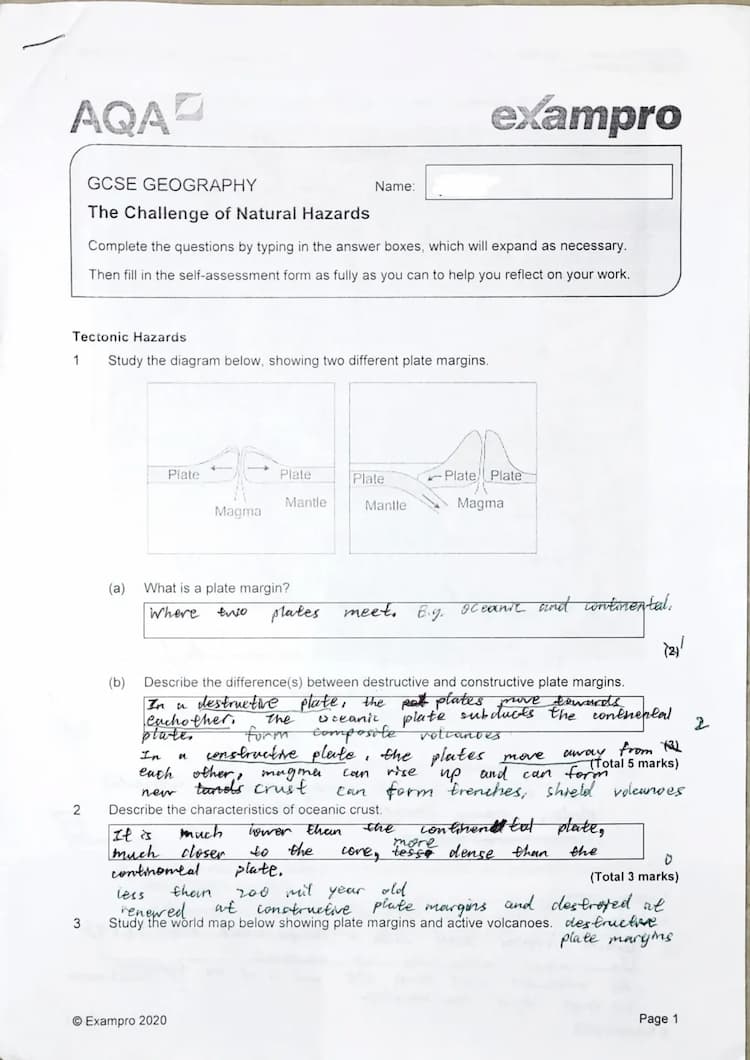 AQA exampro
GCSE GEOGRAPHY Name:
The Challenge of Natural Hazards
Complete the questions by typing in the answer boxes, which will expand as necessary.
Then fill in the self-assessment form as fully as you can to help you reflect on your work.
Tectonic Hazards
1 Study the diagram below, showing two different plate margins.
Plate Plate
Magma Mantle
Plate Plate Plate
Mantle Magma
(a) What is a plate margin?
Where two plates meet. E.g. oceanic and continental.
(2) 1
(b) Describe the difference(s) between destructive and constructive plate margins.
In a destructive plate, the plates move towards
eachother. The oceanic plate subducts the continental
plate. form composite volcanoes
2
In a constructive plate, the plates move away from (3)
(Total 5 marks)
each other, magma can rise up and can form
new crust can form trenches, shield volcanoes
2 Describe the characteristics of oceanic crust.
It is much lower than the continental plate,
much closer to the core, more dense than the
continental plate.
0
(Total 3 marks)
less than 200 mil year old
renewed at constructive plate margins and destroyed at
3 Study the world map below showing plate margins and active volcanoes. destructive
plate margins
© Exampro 2020 Page 1